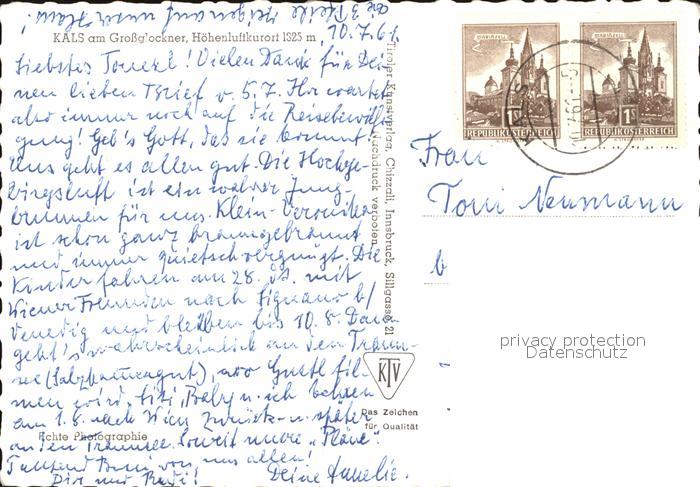 die 3 Pfeile zeigen auf unser Haus!
KALS am Großglockner, Höhenluftkurort 1325 m
10.7.61.
Liebstes Tonerl! Vielen Dank für Dei-
nen lieben Brief v. 5.7. Ihr wartet
also immer noch auf die Reisebewilli-
gung! Geb's Gott, das sie kommt.
Uns geht es allen gut. Die Hochge-
birgsluft ist ein wahrer Jung-
brunnen für uns. Klein-Veronika
ist schon ganz braungebrannt
und immer quietschvergnügt. Die
Kinder fahren am 28. ds. mit
Wiener Freunden nach Lignano b/
Venedig und bleiben bis 10.8. Dann
geht's wahrscheinlich an den Traun-
see (Salzkammergut), wo Gustl fil-
men wird. Baby u. ich kehren
am 1.8. nach Wien zurück u. später
an den Traunsee. Soweit unsere „Pläne“
Tausend Bussi von uns allen!
Dir und Rudi! Deine Annelie.
Echte Photographie
Tiroler Kunstverlag, Chizzali, Innsbruck, Sillgasse 21
Nachdruck verboten
KTV
Das Zeichen
für Qualität
MARIAZELL
1S
REPUBLIK ÖSTERREICH
MARIAZELL
1S
REPUBLIK ÖSTERREICH
KALS
Frau
Toni Neumann
b
privacy protection
Datenschutz